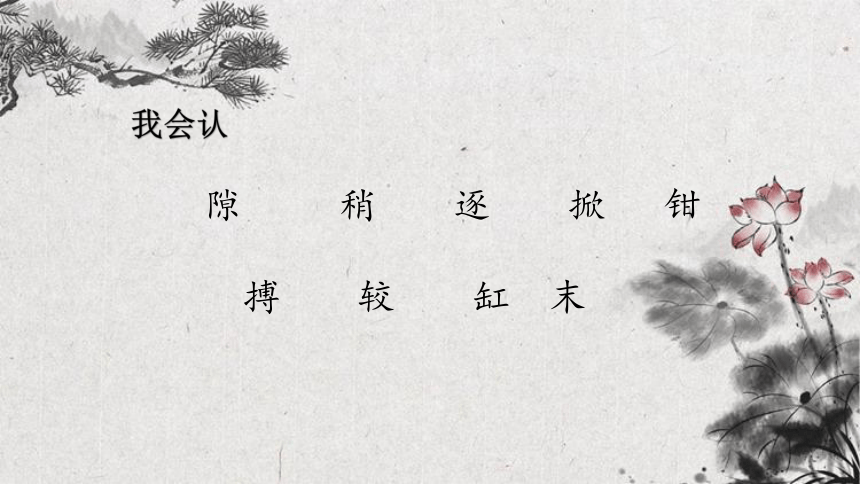 我会认
隙 稍 逐 掀 钳
搏 较 缸 末